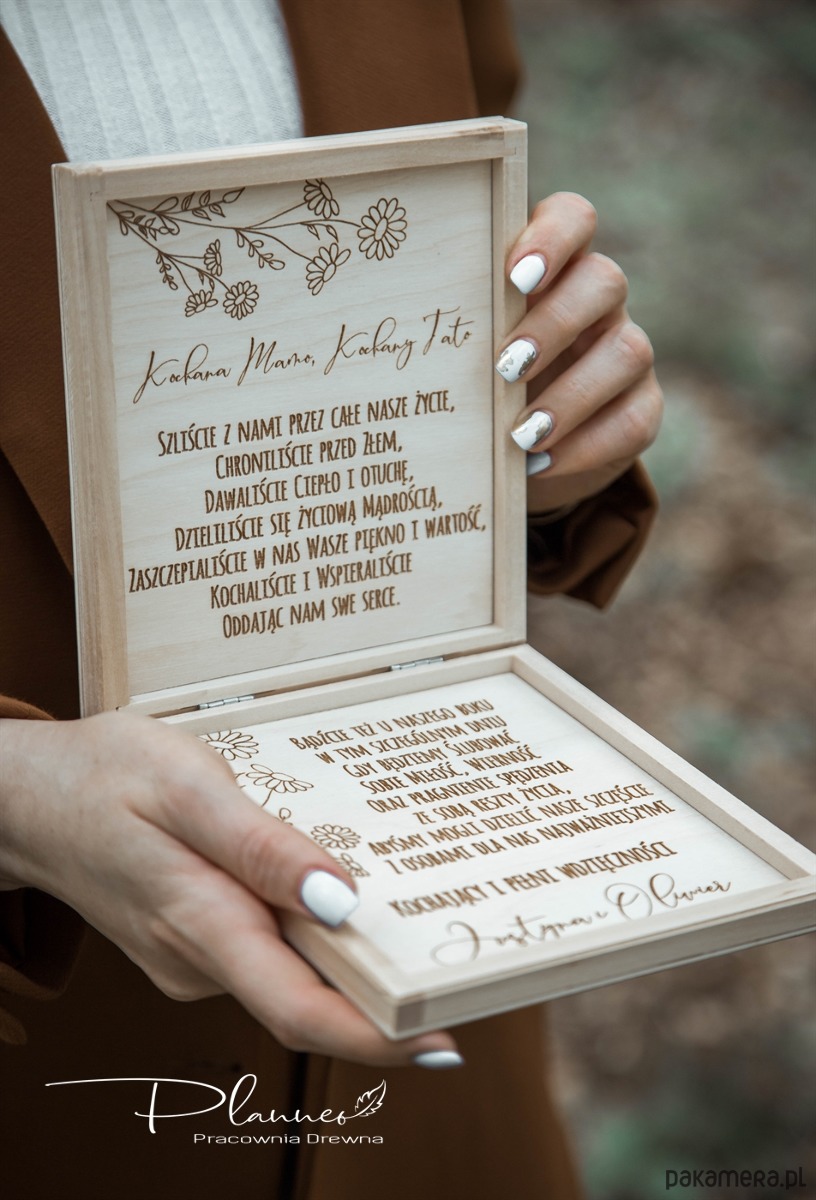 Kochana Mamo, Kochany Tato
Szliście z nami przez całe nasze życie,
Chroniliście przed Złem,
Dawaliście Ciepło i otuchę,
Dzieliliście się życiową Mądrością,
Zaszczepialiście w nas Wasze piękno i wartość,
Kochaliście i Wspieraliście
Oddając nam swe serce.
Bądźcie też u naszego boku
w tym szczególnym dniu
Gdy będziemy Ślubować
Sobie Miłość, Wierność
oraz pragnienie spędzenia
ze sobą reszty życia,
Abyśmy mogli dzielić nasze szczęście
z osobami dla nas najważniejszymi
Kochający i pełni wdzięczności
Justyna i Oliwier
Planneo
Pracownia Drewna
pakamera.pl